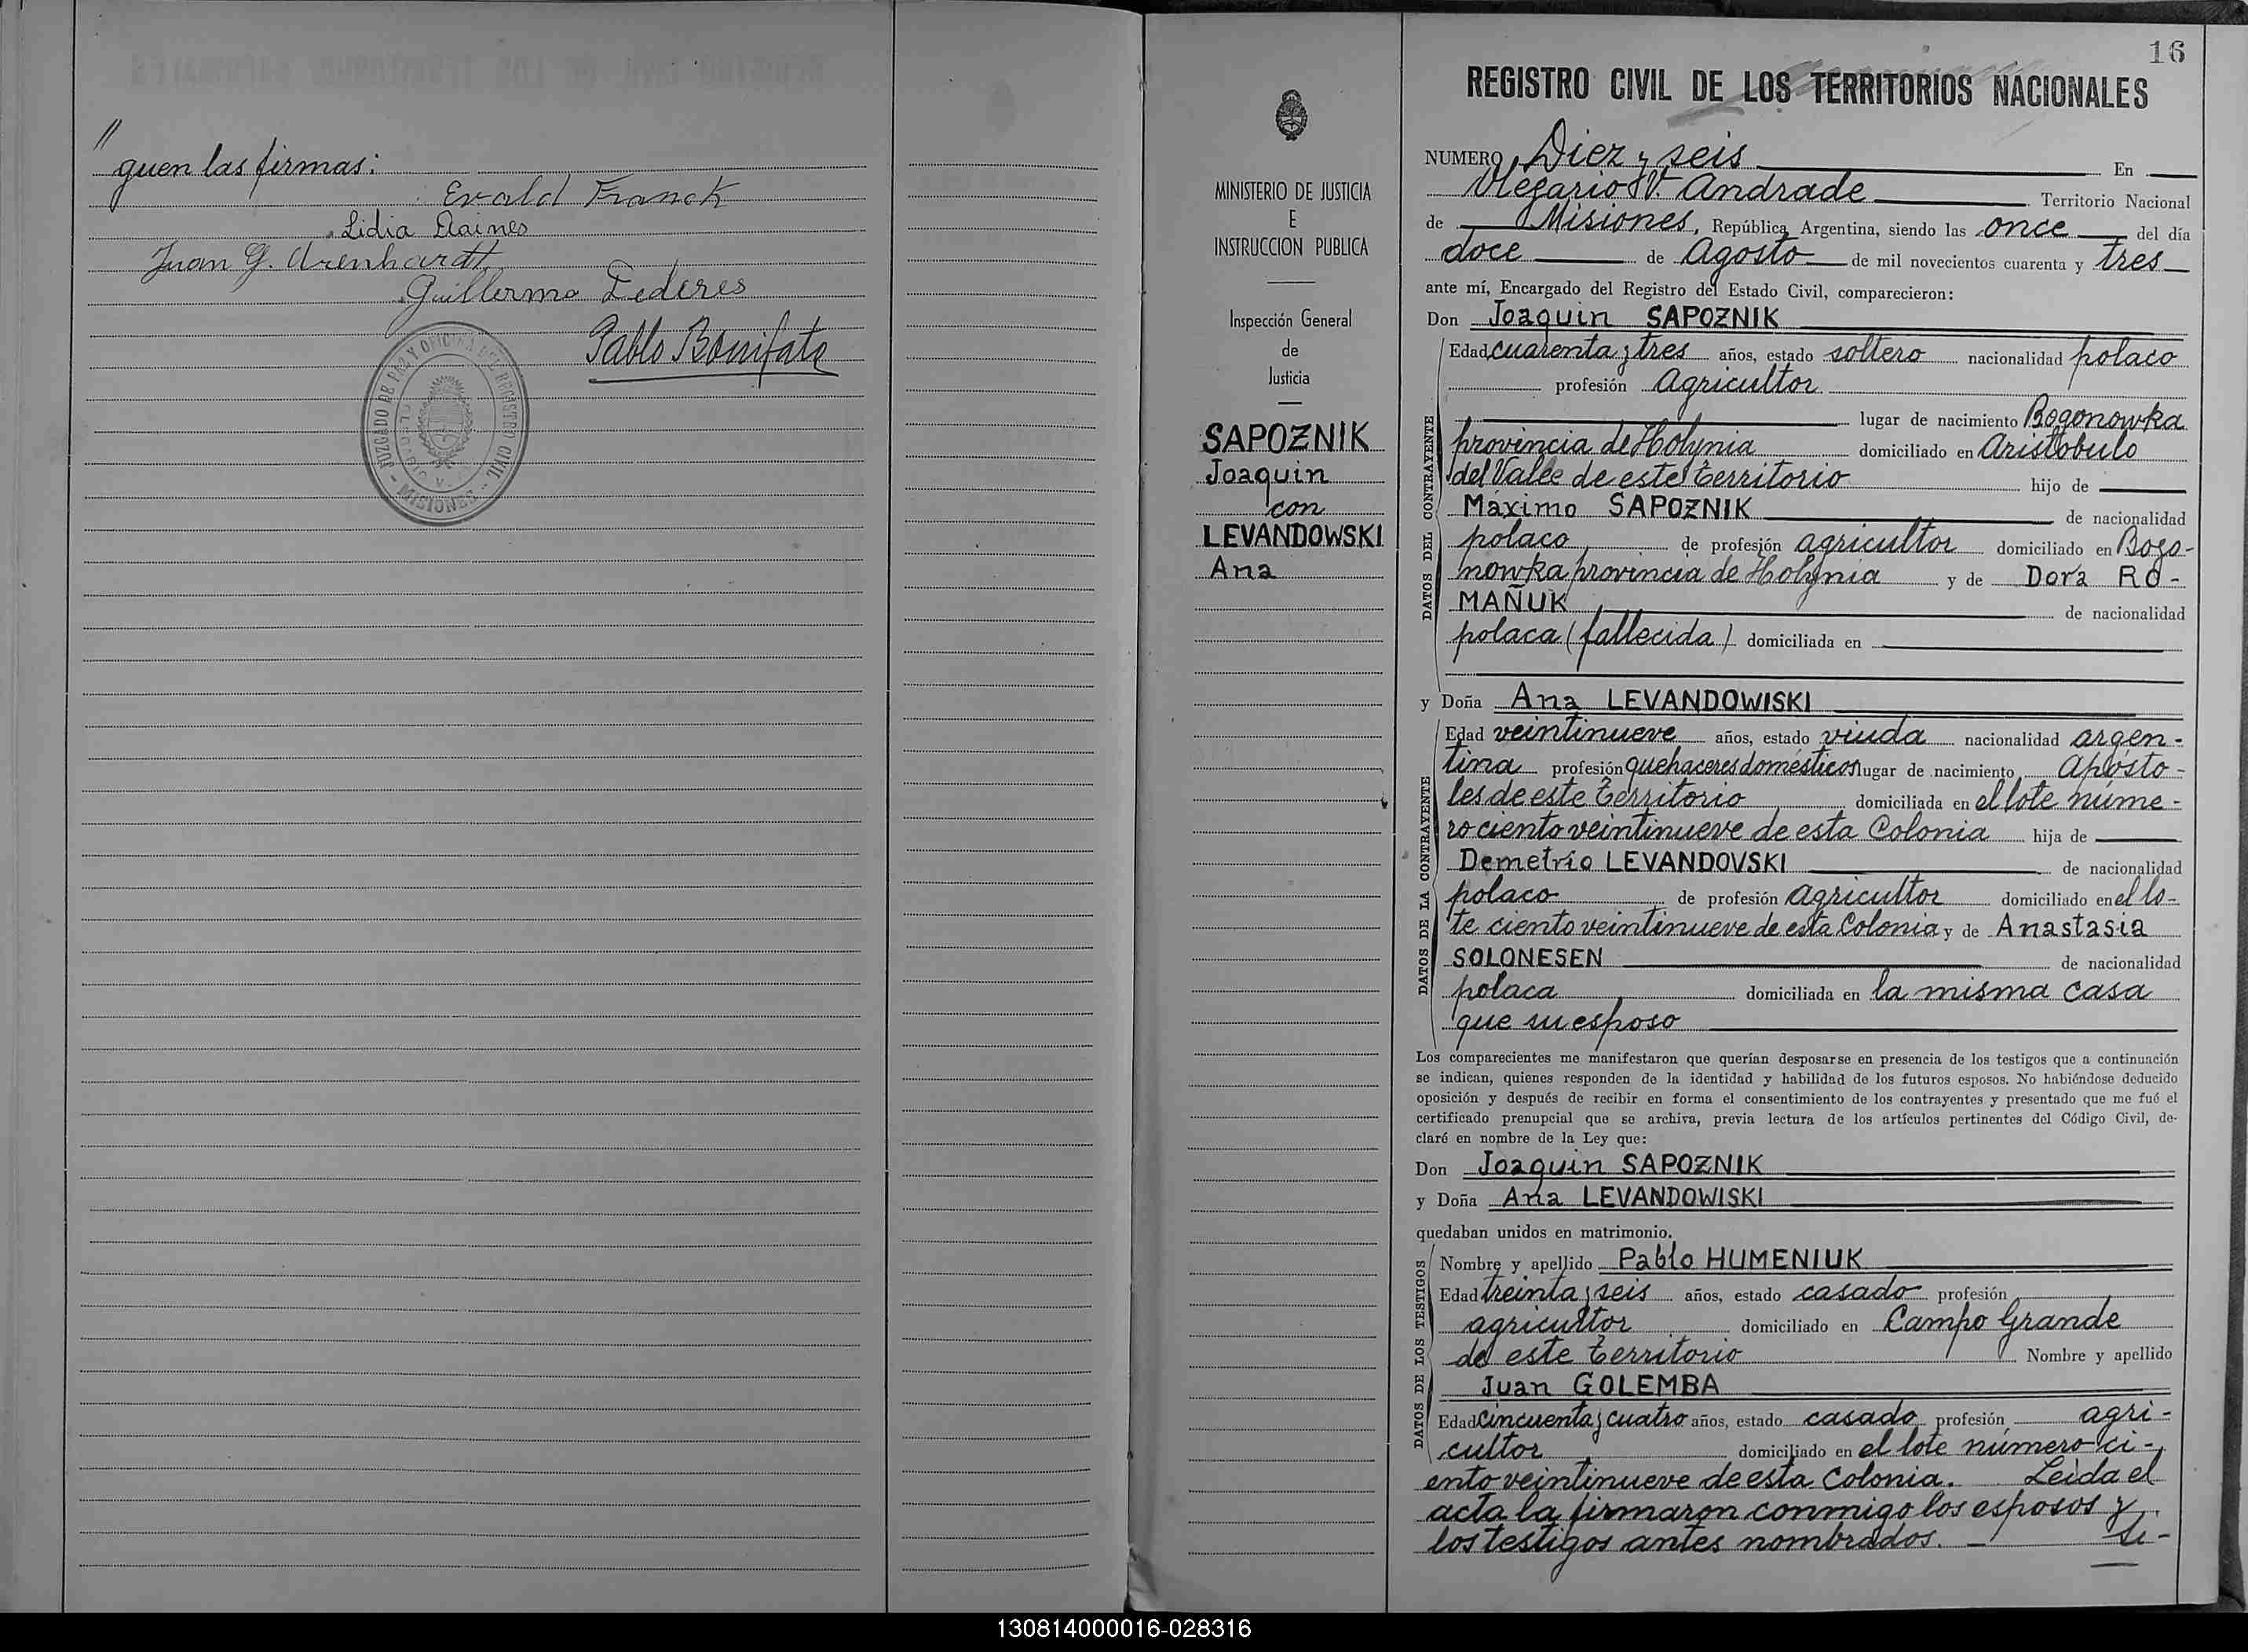 "
guen las firmas:
Evald Franck
Lidia Daines
Juan G. Arenhardt
Guillermo Lederes
Pablo Bonifato
JUZGADO DE PAZ Y OFICINA DEL REGISTRO CIVIL
- MISIONES -
16
REGISTRO CIVIL DE LOS TERRITORIOS NACIONALES
MINISTERIO DE JUSTICIA
E
INSTRUCCION PUBLICA
Inspección General
de
Justicia
SAPOZNIK
Joaquin
con
LEVANDOWSKI
Ana
NUMERO Diez y seis En
Olegario V. Andrade Territorio Nacional
de Misiones, República Argentina, siendo las once del día
doce de Agosto de mil novecientos cuarenta y tres
ante mí, Encargado del Registro del Estado Civil, comparecieron:
Don Joaquin SAPOZNIK
DATOS DEL CONTRAYENTE
Edad cuarenta y tres años, estado soltero nacionalidad polaco
profesión agricultor
lugar de nacimiento Bogonowka
provincia de Holynia domiciliado en Aristóbulo
del Valle de este territorio hijo de
Máximo SAPOZNIK de nacionalidad
polaco de profesión agricultor domiciliado en Bogo-
nowka provincia de Holynia y de Dora RO-
MAÑUK de nacionalidad
polaca (fallecida) domiciliada en
y Doña Ana LEVANDOWISKI
DATOS DE LA CONTRAYENTE
Edad veintinueve años, estado viuda nacionalidad argen-
tina profesión quehaceres domésticos lugar de nacimiento Apósto-
les de este territorio domiciliada en el lote núme-
ro ciento veintinueve de esta Colonia hija de
Demetrio LEVANDOVSKI de nacionalidad
polaco de profesión agricultor domiciliado en el lo-
te ciento veintinueve de esta Colonia y de Anastasia
SOLONESEN de nacionalidad
polaca domiciliada en la misma casa
que su esposo
Los comparecientes me manifestaron que querían desposarse en presencia de los testigos que a continuación
se indican, quienes responden de la identidad y habilidad de los futuros esposos. No habiéndose deducido
oposición y después de recibir en forma el consentimiento de los contrayentes y presentado que me fué el
certificado prenupcial que se archiva, previa lectura de los artículos pertinentes del Código Civil, de-
claré en nombre de la Ley que:
Don Joaquin SAPOZNIK
y Doña Ana LEVANDOWISKI
quedaban unidos en matrimonio.
DATOS DE LOS TESTIGOS
Nombre y apellido Pablo HUMENIUK
Edad treinta y seis años, estado casado profesión
agricultor domiciliado en Campo Grande
de este territorio Nombre y apellido
Juan GOLEMBA
Edad cincuenta y cuatro años, estado casado profesión agri-
cultor domiciliado en el lote número ci-
ento veintinueve de esta Colonia. Leida el
acta la firmaron conmigo los esposos y
los testigos antes nombrados. - Si-
130814000016-028316